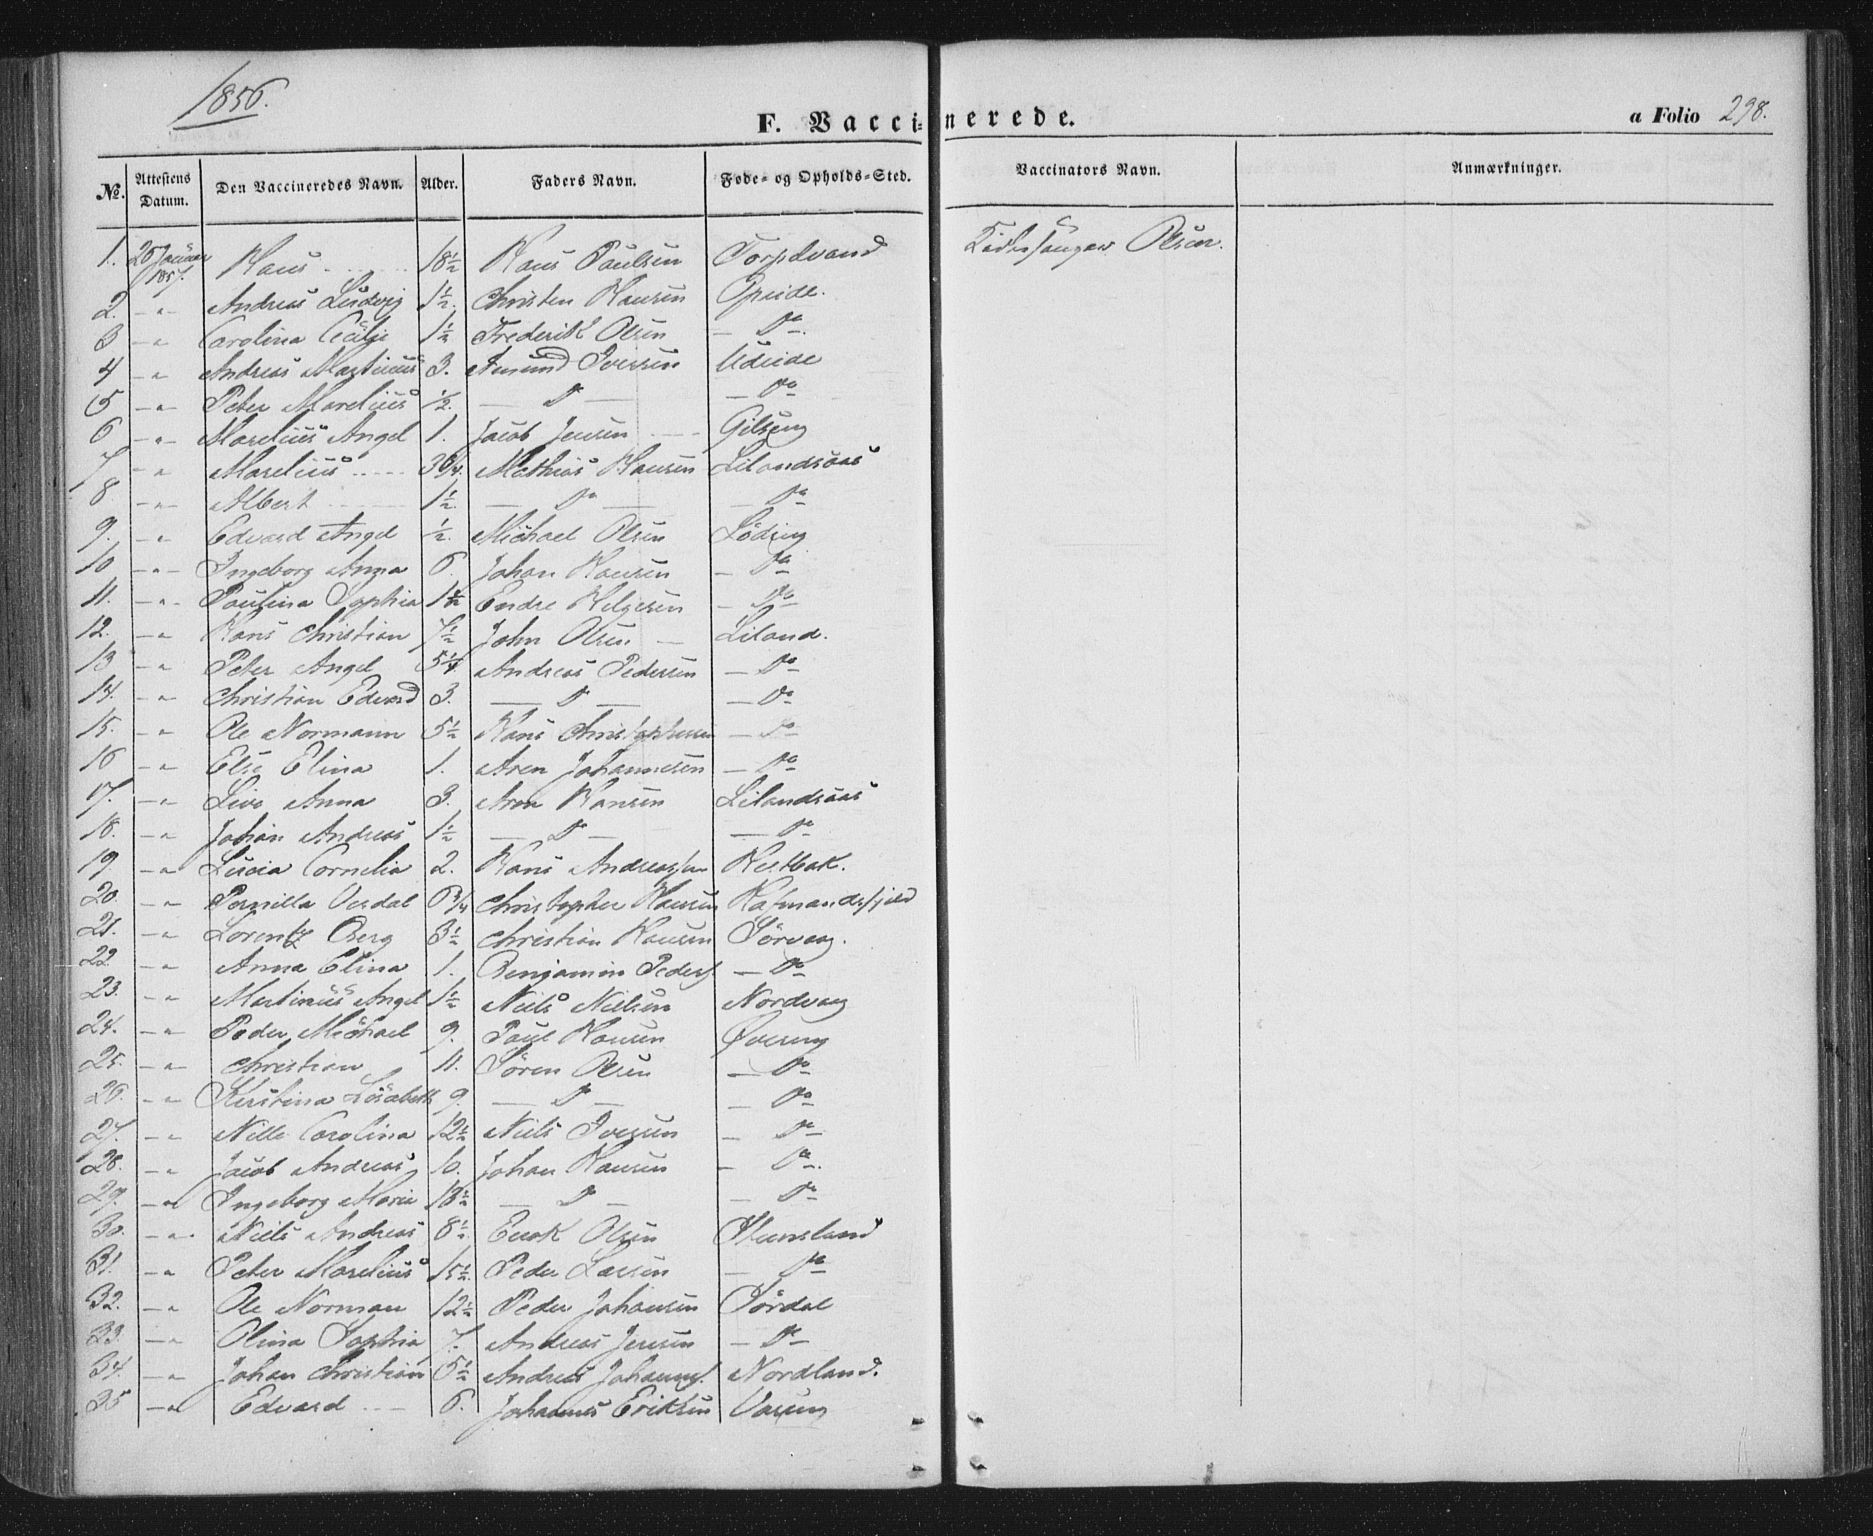 1856.
F. Vaccinerede.
a Folio 298.
No. Attestens Datum. Den Vaccineredes Navn. Alder. Faders Navn. Føde- og Opholds-Sted. Vaccinators Navn. Anmærkninger.
1. 26 Januar 1857. Hans 18½ Hans Paulsen Torpdvand Kirkesanger Olsen.
2. -"- Andreas Ludvig 1½. Christen Hansen Opeide.
3 -"- Carolina Cecilje 1½ Frederik Olsen - Do -
4 -"- Andreas Martinus 3. Amund Iversen Udeide
5 -"- Peter Marelius ½. - Do - - Do -
6 -"- Marelius Angel 1. Jacob Jensen Gilseng
7 -"- Marelius 3¾. Mathias Hansen Lilandsaas
8 -"- Albert 1½. - Do - - Do -
9. -"- Edvard Angel ½. Michael Olsen Löding
10 -"- Ingeborg Anna 6. Johan Hansen - Do -
11. -"- Paulina Sophia 1½ Endre Helgesen - Do -
12. -"- Hans Christian 7½ John Olsen Liland.
13 -"- Peter Angel 5¼ Andreas Pedersen - Do -
14. -"- Christian Edvard 3. - Do - - Do -
15. -"- Ole Normann 5½ Hans Christophersen - Do -
16 -"- Else Elina 1. Aren Johannesen - Do -
17. -"- Live Anna 3. Aron Hansen Lilandsaas
18. -"- Johan Andreas 1½ - Do - - Do -
19. -"- Lucia Cornelia 2. Hans Andreassen
20. -"- Pernilla Verdal 6¾ Christopher Hansen
21. -"- Lorentz Berg 3½ Christian Hansen Sörvaag.
22. -"- Anna Elina 1. Benjamin Peders. - Do -
23. -"- Martinus Angel 1½ Niels Nielsen Nordvaag
24. -"- Peder Michael 9. Paul Hansen Øvereng
25. -"- Christian 11. Sören Olsen - Do -
26. -"- Kirstina Lisabeth 9. - Do - - Do -
27. -"- Nille Carolina 12½ Niels Iversen - Do -
28. -"- Jacob Andreas 10. Johan Hansen - Do -
29. -"- Ingeborg Maria 13½ - Do - - Do -
30. -"- Niels Andreas 8½ Enok Olsen Stensland
31. -"- Peter Marelius 15½. Peder Larsen - Do -
32. -"- Ole Norman 12½ Peder Johansen Sördal
33. -"- Olina Sophia 7. Andreas Jensen - Do -
34. -"- Johan Christian 5½ Andreas Johannes. Nordland.
35 -"- Edvard 6. Johannes Eriksen